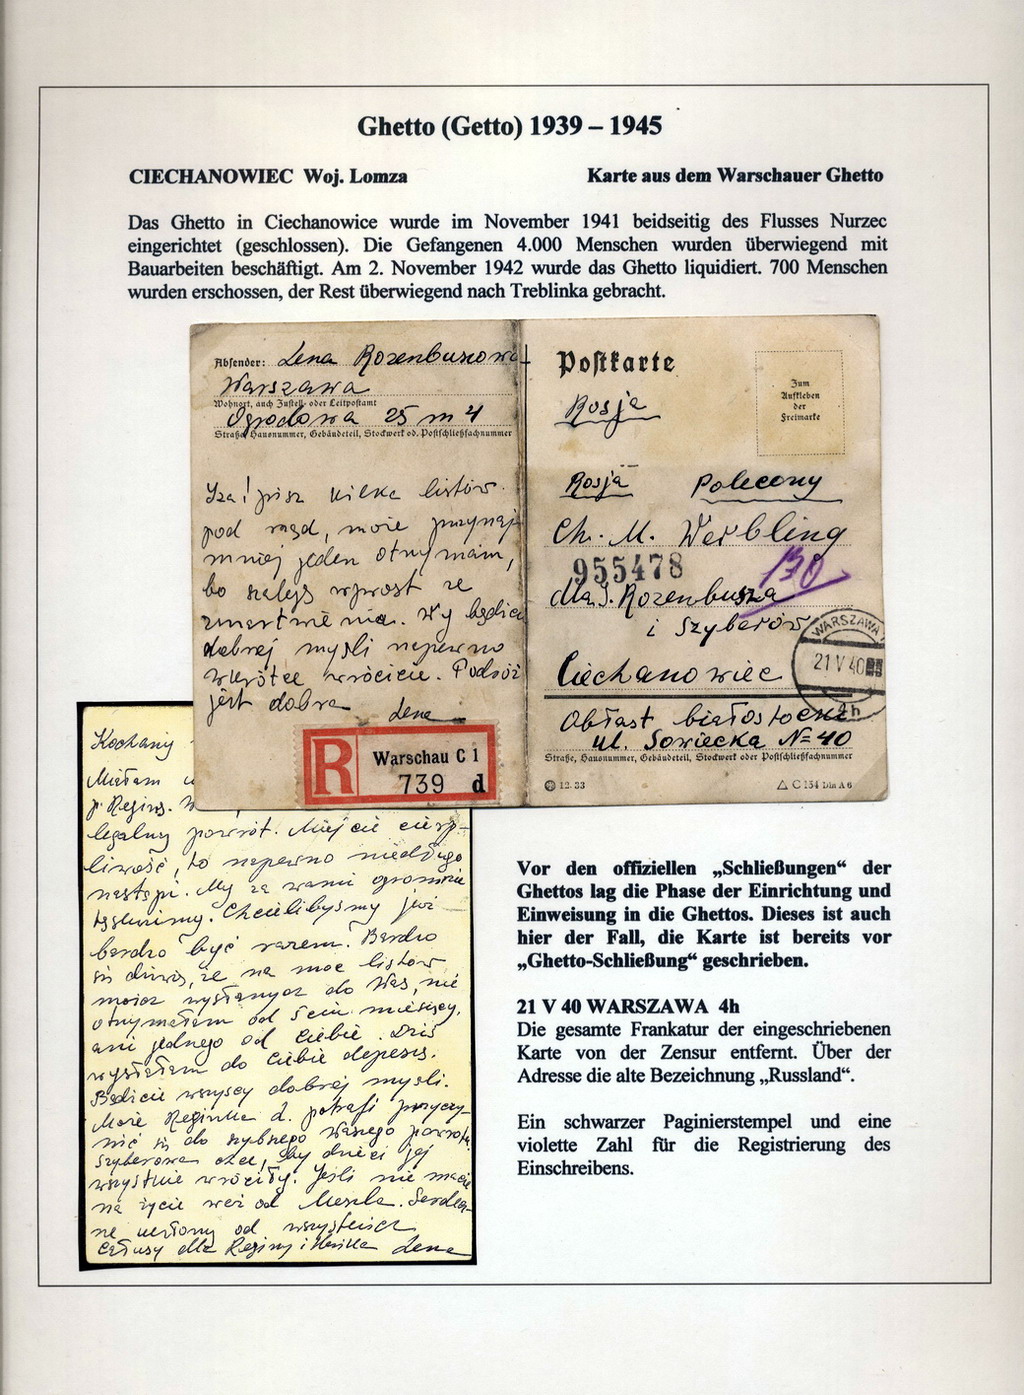 Ghetto (Getto) 1939 – 1945
CIECHANOWIEC Woj. Lomza
Karte aus dem Warschauer Ghetto
Das Ghetto in Ciechanowice wurde im November 1941 beidseitig des Flusses Nurzec
eingerichtet (geschlossen). Die Gefangenen 4.000 Menschen wurden überwiegend mit
Bauarbeiten beschäftigt. Am 2. November 1942 wurde das Ghetto liquidiert. 700 Menschen
wurden erschossen, der Rest überwiegend nach Treblinka gebracht.
Absender: Lena Rozenbuszowa
Warszawa
Wohnort, auch Zustell- oder Leitpostamt
Ogrodowa 25 m 4
Straße, Hausnummer, Gebäudeteil, Stockwerk od. Postschließfachnummer
Iza! pisz kilka listów
pod rząd, może przynaj
mniej jeden otrzymam,
bo szaleję wprost ze
zmartwienia. Wy bądźcie
dobrej myśli napewno
wkrótce wrócicie. Podróż
jest dobra
Lena
R
Warschau C 1
739 d
Postkarte
Zum
Aufkleben
der
Freimarke
Rosja
Rosja Polecony
Ch. M. Werbling
955478
130
dla J. Rozenbusza
i Szyberów
WARSZAWA
21 V 40
Ciechanowiec
Obłast białostocki
ul. Sowiecka N= 40
Straße, Hausnummer, Gebäudeteil, Stockwerk oder Postschließfachnummer
12. 33
C 154 Din A 6
Kochany
Miałam
p. Reginę. W
legalny powrót. Miejcie cierp-
liwość, to napewno niedługo
nastąpi. My za wami ogromnie
tęsknimy. Chcielibyśmy już
bardzo być razem. Bardzo
się dziwię, że na moc listów
moich wysłanych do Was, nie
otrzymałam od 5ciu miesięcy,
ani jednego od Ciebie. Dziś
wysłałam do Ciebie depeszę.
Bądźcie wszyscy dobrej myśli.
Może Reginka d. potrafi przyczy-
nić się do szybszego Waszego powrotu.
Szyberowa chce, aby dzieci jej
wszystkie wróciły. Jeśli nie macie
na życie weź od Meszla. Serdecz-
ne ukłony od wszystkich
Całusy dla Reginy i Heńka Lena
Vor den offiziellen „Schließungen“ der
Ghettos lag die Phase der Einrichtung und
Einweisung in die Ghettos. Dieses ist auch
hier der Fall, die Karte ist bereits vor
„Ghetto-Schließung“ geschrieben.
21 V 40 WARSZAWA 4h
Die gesamte Frankatur der eingeschriebenen
Karte von der Zensur entfernt. Über der
Adresse die alte Bezeichnung „Russland“.
Ein schwarzer Paginierstempel und eine
violette Zahl für die Registrierung des
Einschreibens.